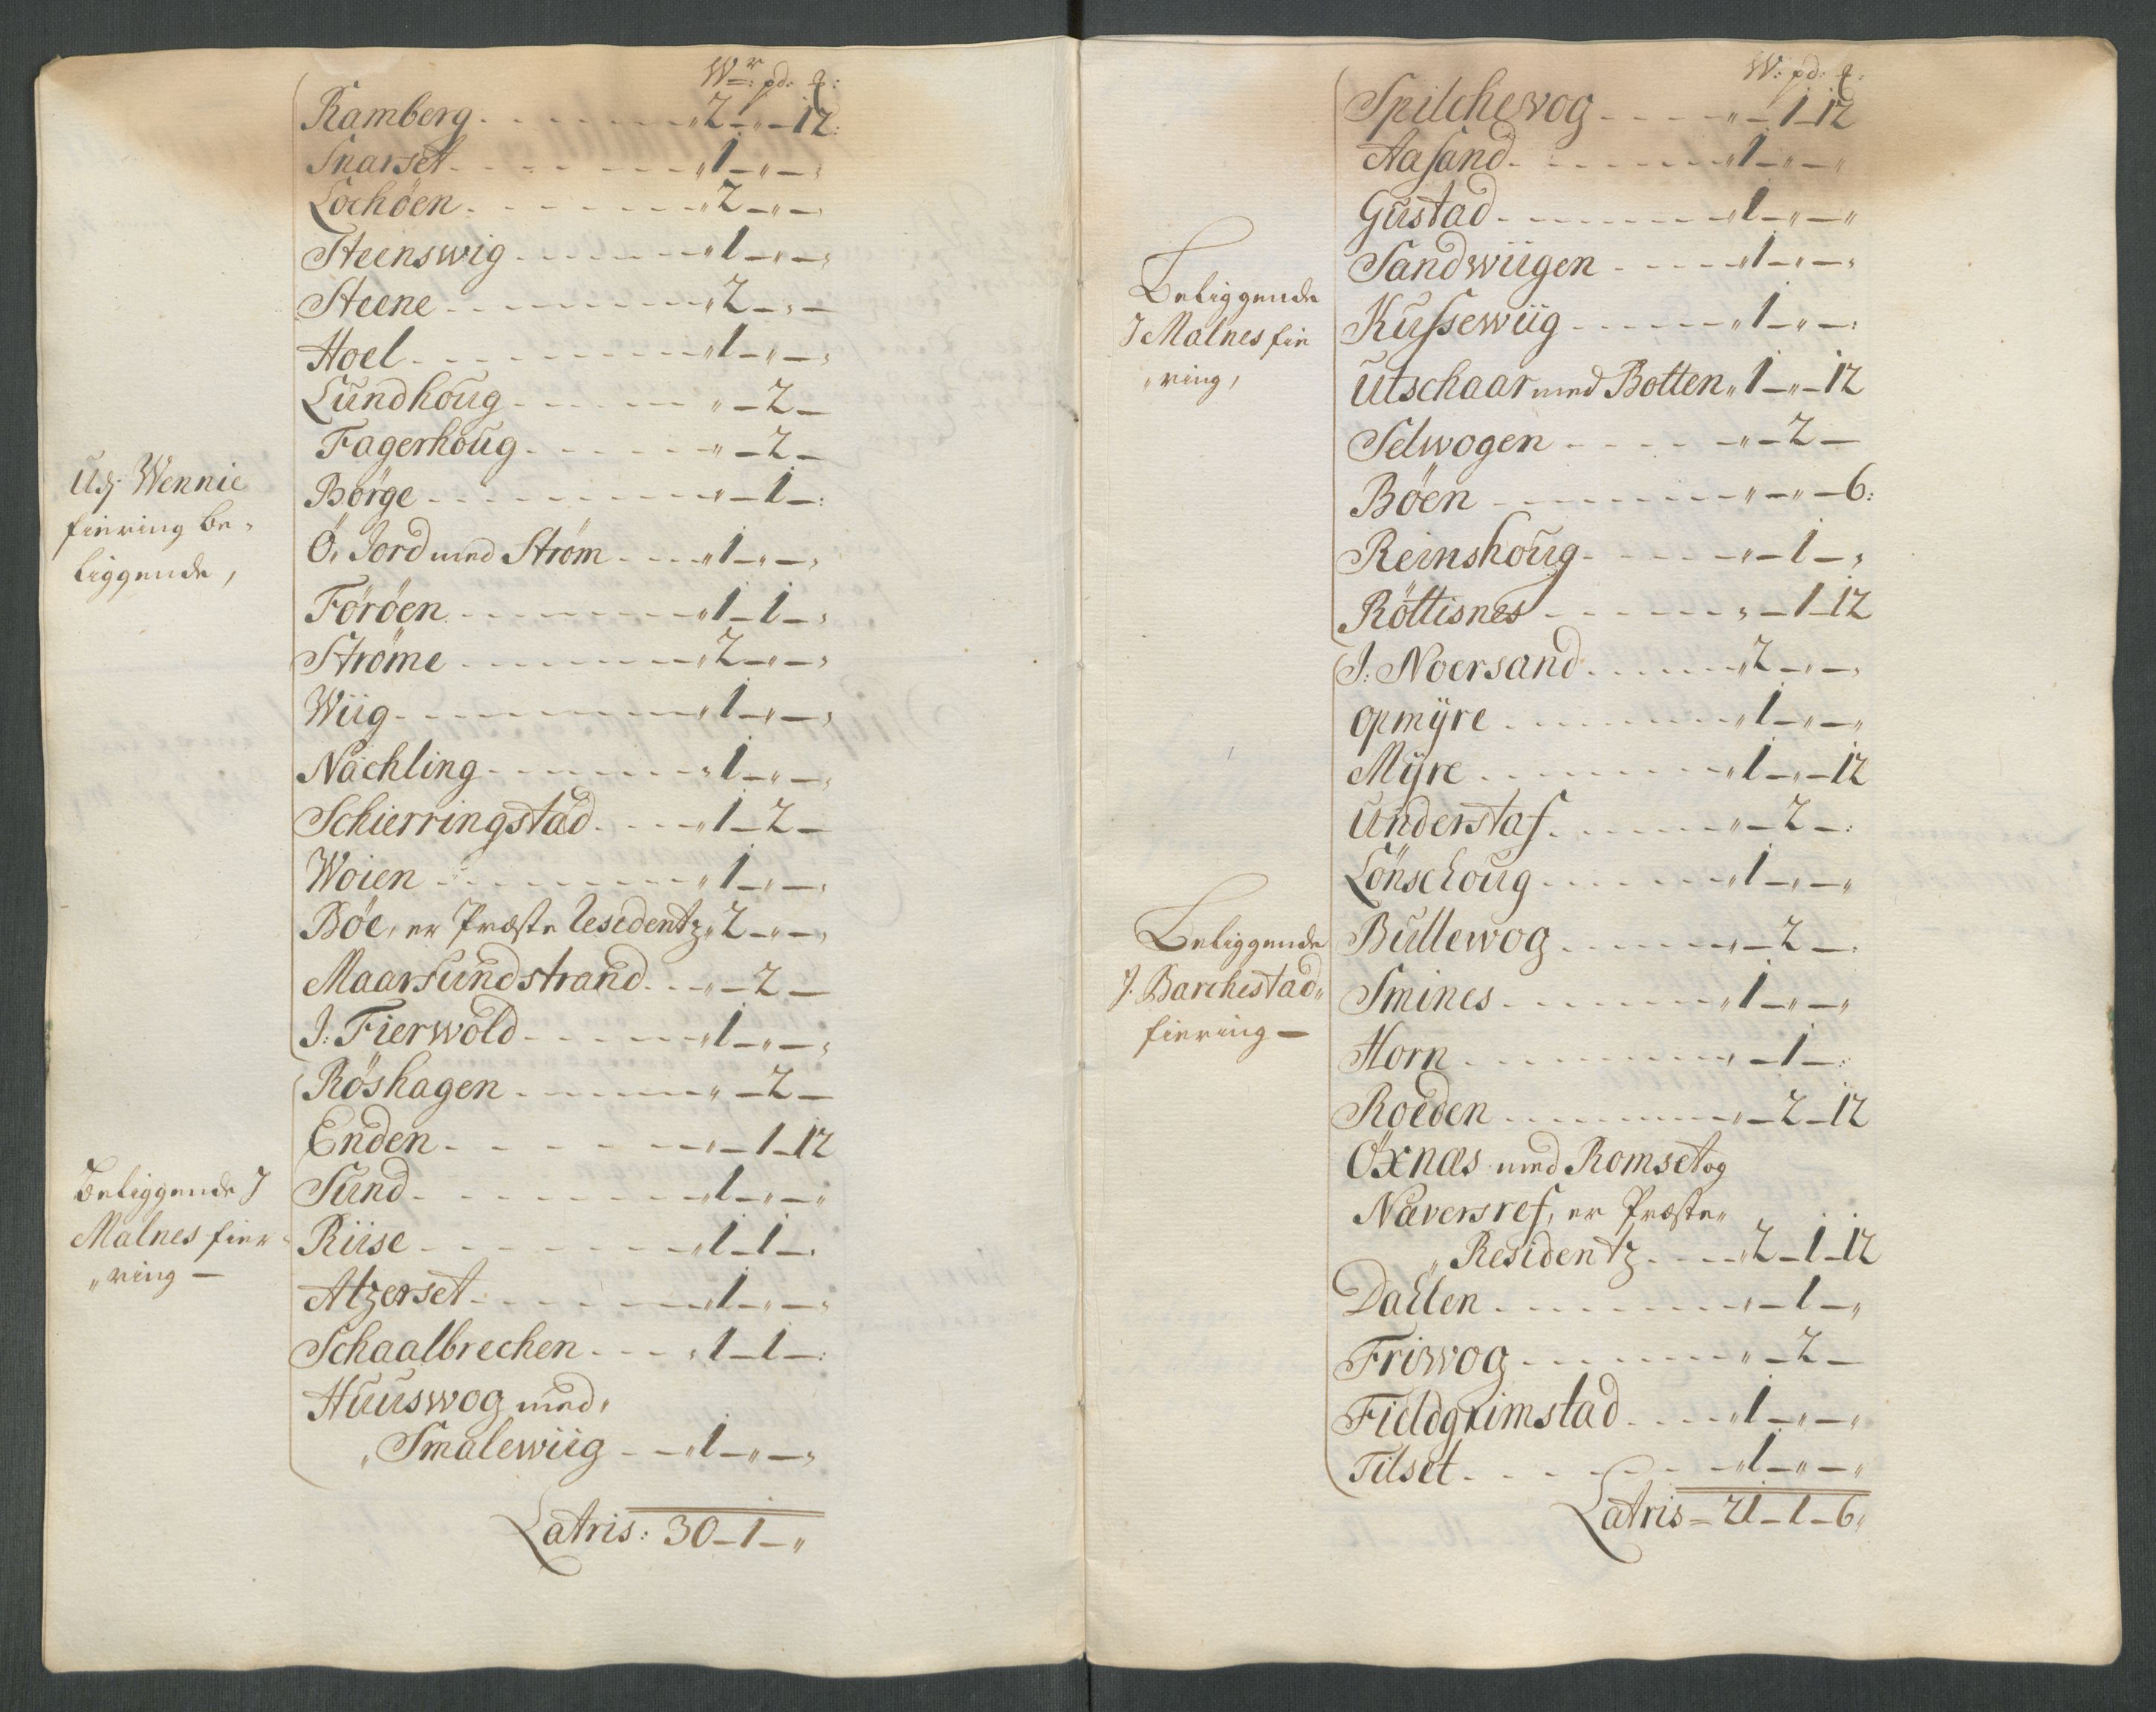 Wr: pd: ƺ:
Ramberg - - - - - - - „ 2 - „ - 12:
Snarset - - - - - - - „ 1 - „ - „
Lochöen - - - - - - - „ 2 - „ - „
Steenswig - - - - - - „ 1 - „ - „
Steene - - - - - - - „ 2 - „ -
Hoel - - - - - - - - „ 1 - „ - „
Lundhoug - - - - - - „ - 2 -
Fagerhoug - - - - - - „ - 2 -
Udj Wennie
fiering be„
liggende,
Börge - - - - - - - - „ - 1 - :
Ö, Jord med Strøm - - - „ 1 - „ - „
Föröen - - - - - - - „ 1 - 1 - „
Ströme - - - - - - - „ 2 - „ - „
Wiig - - - - - - - - „ 1 - „ - „
Nächling - - - - - - - „ 1 - „ - „
Schierringstad - - - - „ 1 - 2 -
Woien - - - - - - - - „ 1 - „ - „
Böe, er Præste Residentz „ 2 - „ - „
Maarsundstrand - - - „ - 2 -
J: Fierwold - - - - - - „ 1 - „ - „
Beliggende J
Malnes fier„
„ring -
Röshagen - - - - - - „ - 2 -
Enden - - - - - - - „ - 1 - 12
Sund - - - - - - - - „ 1 - „ - „
Riise - - - - - - - - „ 1 - 1 - „
Atzerset - - - - - - - „ 1 - „ - „
Schaalbrechen - - - - „ 1 - 1 - :
Huuswog med,
„Smalewiig - - - „ 1 - „ - „
Latris: 30 - 1 - „
W: pd: ƺ:
Spilchewog - - - - - „ - 1 - 12
Aasand - - - - - - - „ 1 - „ - „
Gustad - - - - - - - „ 1 - „ - „
Beliggende
J Malnes fie
„ring,
Sandwiigen - - - - - „ 1 - „ - „
Kussewiig - - - - - - „ 1 - „ - :
Utschaar med Botten „ 1 - „ - 12
Selwogen - - - - - - „ - 2 -
Böen - - - - - - - - „ - „ - 6:
Reinshoug - - - - - - „ - 1 - „
Röttisnes - - - - - - „ - 1 - 12
J: Noersand - - - - - „ 2 - „ - „
opmÿre - - - - - - - „ 1 - „ - „
Mÿre - - - - - - - - „ 1 - „ - 12
Understaf - - - - - - „ - 2 - :
Lönschoug - - - - - - „ 1 - „ - „
Beliggende
J. Barchestad„
fiering -
Bullewog - - - - - - „ - 2 - :
Smines - - - - - - - „ 1 - „ - „
Horn - - - - - - - - „ - 1 - :
Roeden - - - - - - - „ - 2 - 12
Öxnæs med Romset og
Næversref, er Præste„
„Residentz - - - - „ 2 - 1 - 12
Dallen - - - - - - - „ - 1 - „
Friwog - - - - - - - „ - 2 -
Fieldgrimstad - - - - „ 1 - „ - „
Tilset - - - - - - - - „ 1 - „ - „
Latris = 21 - 1 - 6„